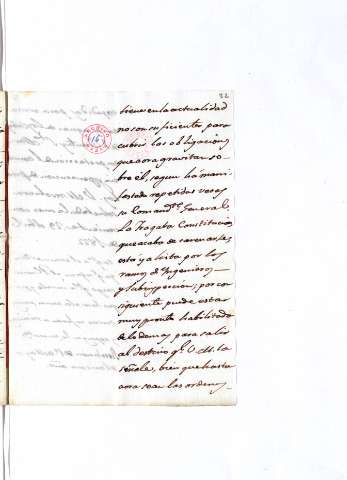 22
tiene en la actualidad
no son suficientes para
cubrir las obligaciones
que aora gravitan so-
bre él, segun ha mani-
festado repetidas veces
su Comand.te General.
La Fragata Constitucion
que acaba de carenarse,
está ya lista por los
ramos de Ingenieros
y Subinspeccion; por con-
siguiente puede estar
muy pronto habilitada
de lo demas para salir
al destino q.e V. M. la
señale, bien que hasta
aora sean las ordenes